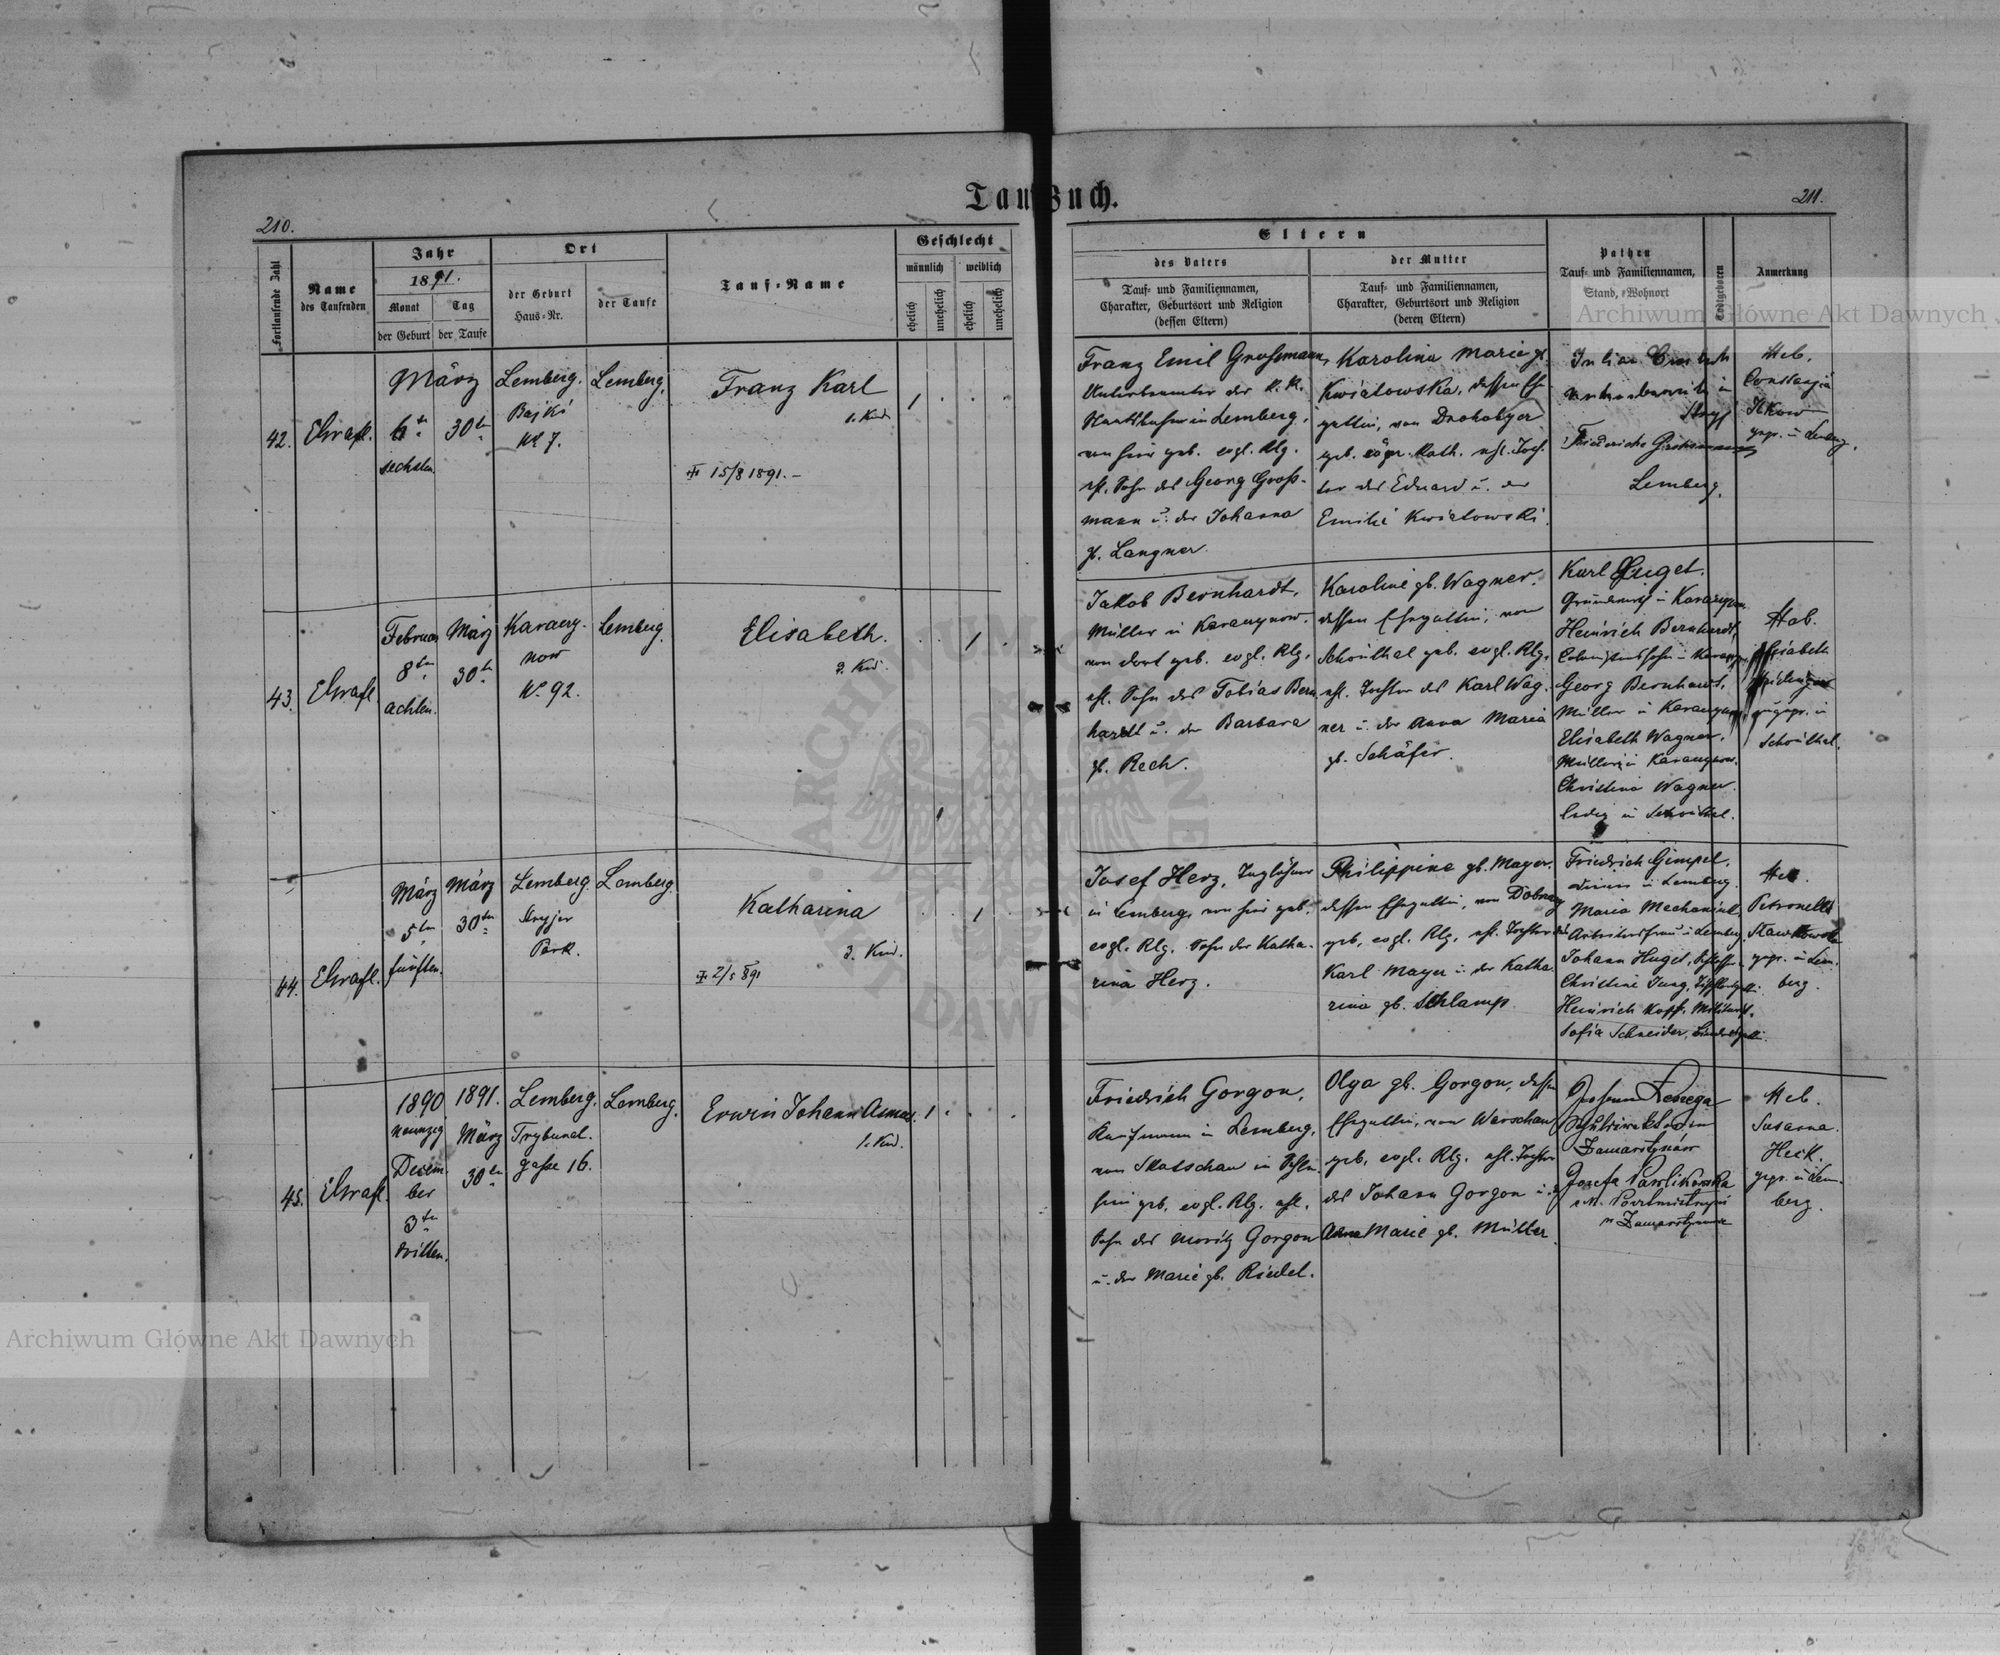 Tauf Buch.
210.
211.
Fortlaufende Zahl
Name
des Taufenden
Jahr
1891.
Monat
Tag
der Geburt
der Taufe
Ort
der Geburt
Haus-Nr.
der Taufe
Tauf-Name
Geschlecht
männlich
weiblich
ehelich
unehelich
ehelich
unehelich
Eltern
des Vaters
Tauf- und Familiennamen,
Charakter, Geburtsort und Religion
(dessen Eltern)
der Mutter
Tauf- und Familiennamen,
Charakter, Geburtsort und Religion
(deren Eltern)
Pathen
Tauf- und Familiennamen,
Stand, Wohnort
Todtgeboren
Anmerkung
42.
März
6ten
sechsten
30ten
Lemberg.
Bajki
No 7.
Lemberg.
Franz Karl
1. Kind
15/8 1891.
1
Franz Emil Grossmann,
Unterbeamter der k. k.
in Lemberg,
von hier geb. evgl. Rlg.
ehl. Sohn des Georg Groß-
mann u. der Johanna
gb. Langner.
Karolina Maria gb.
Kwiatowska, dessen Eh-
gattin, von Drohobycz
geb. röm. Kath. ehl. Toch-
ter des Eduard u. der
Emilie Kwiatowski.
Friederike Grossmann
Lemberg.
Heb.
Constazia
Ilkow
gepr. in Lemberg.
43.
Februar
8ten
achten.
März
30ten
Karaczy-
now
No 92.
Lemberg.
Elisabeth.
2. Kind.
1
Jakob Bernhardt,
Müller in Karaczynow,
von dort geb. evgl. Rlg.
ehl. Sohn des Tobias Bern-
hardt u. der Barbara
gb. Rech.
Karoline gb. Wagner,
dessen Ehegattin, von
Schönthal geb. evgl. Rlg.
ehl. Tochter des Karl Wag-
ner u. der Anna Maria
gb. Schäfer.
Karl Huget,
Grundwirth in Karaczynow
Heinrich Bernhardt,
Colonistensohn in Karaczynow
Georg Bernhardt,
Müller in Karaczynow,
Elisabeth Wagner,
Müllerin Karaczynow.
Christina Wagner.
ledig in Schönthal.
Heb.
Elisabeth
ungepr. in
Schönthal.
44.
März
5ten
fünften.
März
30ten
Lemberg
Stryjer
Park.
Lemberg
Katharina
3. Kind.
2/5 891
1
Josef Herz, Taglöhner
in Lemberg, von hier geb.
evgl. Rlg. Sohn der Katha-
rina Herz.
Philippine gb. Mayer.
dessen Ehegattin, von
geb. evgl. Rlg. ehl. Tochter des
Karl Mayer u. der Katha-
rina gb. Schlamp.
Friedrich Gimpel,
Diener in Lemberg.
Maria
Arbeitersfrau in Lemberg.
Johann Huget,
Christine Jung,
Heinrich Kopf,
Sofia Schneider,
Heb.
Petronella
gepr. in Lem-
berg.
45.
1890
neunzig
Decem-
ber
3ten
dritten.
1891.
März
30ten
Lemberg.
Trybunal-
gasse 16.
Lemberg.
Erwin Johann
1. Kind.
1
Friedrich Gorgon,
Kaufmann in Lemberg,
von Skotschau in Schle-
sien geb. evgl. Rlg. ehl.
Sohn des Moritz Gorgon
u. der Marie gb. Riedel.
Olga gb. Gorgon, dessen
Ehegattin, von Warschau
geb. evgl. Rlg. ehl. Tochter
des Johann Gorgon u. der
Anna Marie gb. Müller.
Zamarstynów
Józefa Pawlikowska
w Zamarstynowie
Heb.
Susanna
Heck.
gepr. in Lem-
berg.
Archiwum Główne Akt Dawnych
Archiwum Główne Akt Dawnych
ARCHIWUM GŁÓWNE AKT DAWNYCH